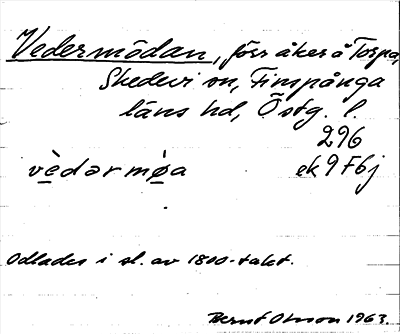 Vedermödan, förr åker å Torpa,
Skedevi sn, Finspånga
läns hd, Östg. l.
296
vèdərmø̀a ek 9 F6j
Odlades i sl. av 1800-talet.
Bernt Olsson 1963.